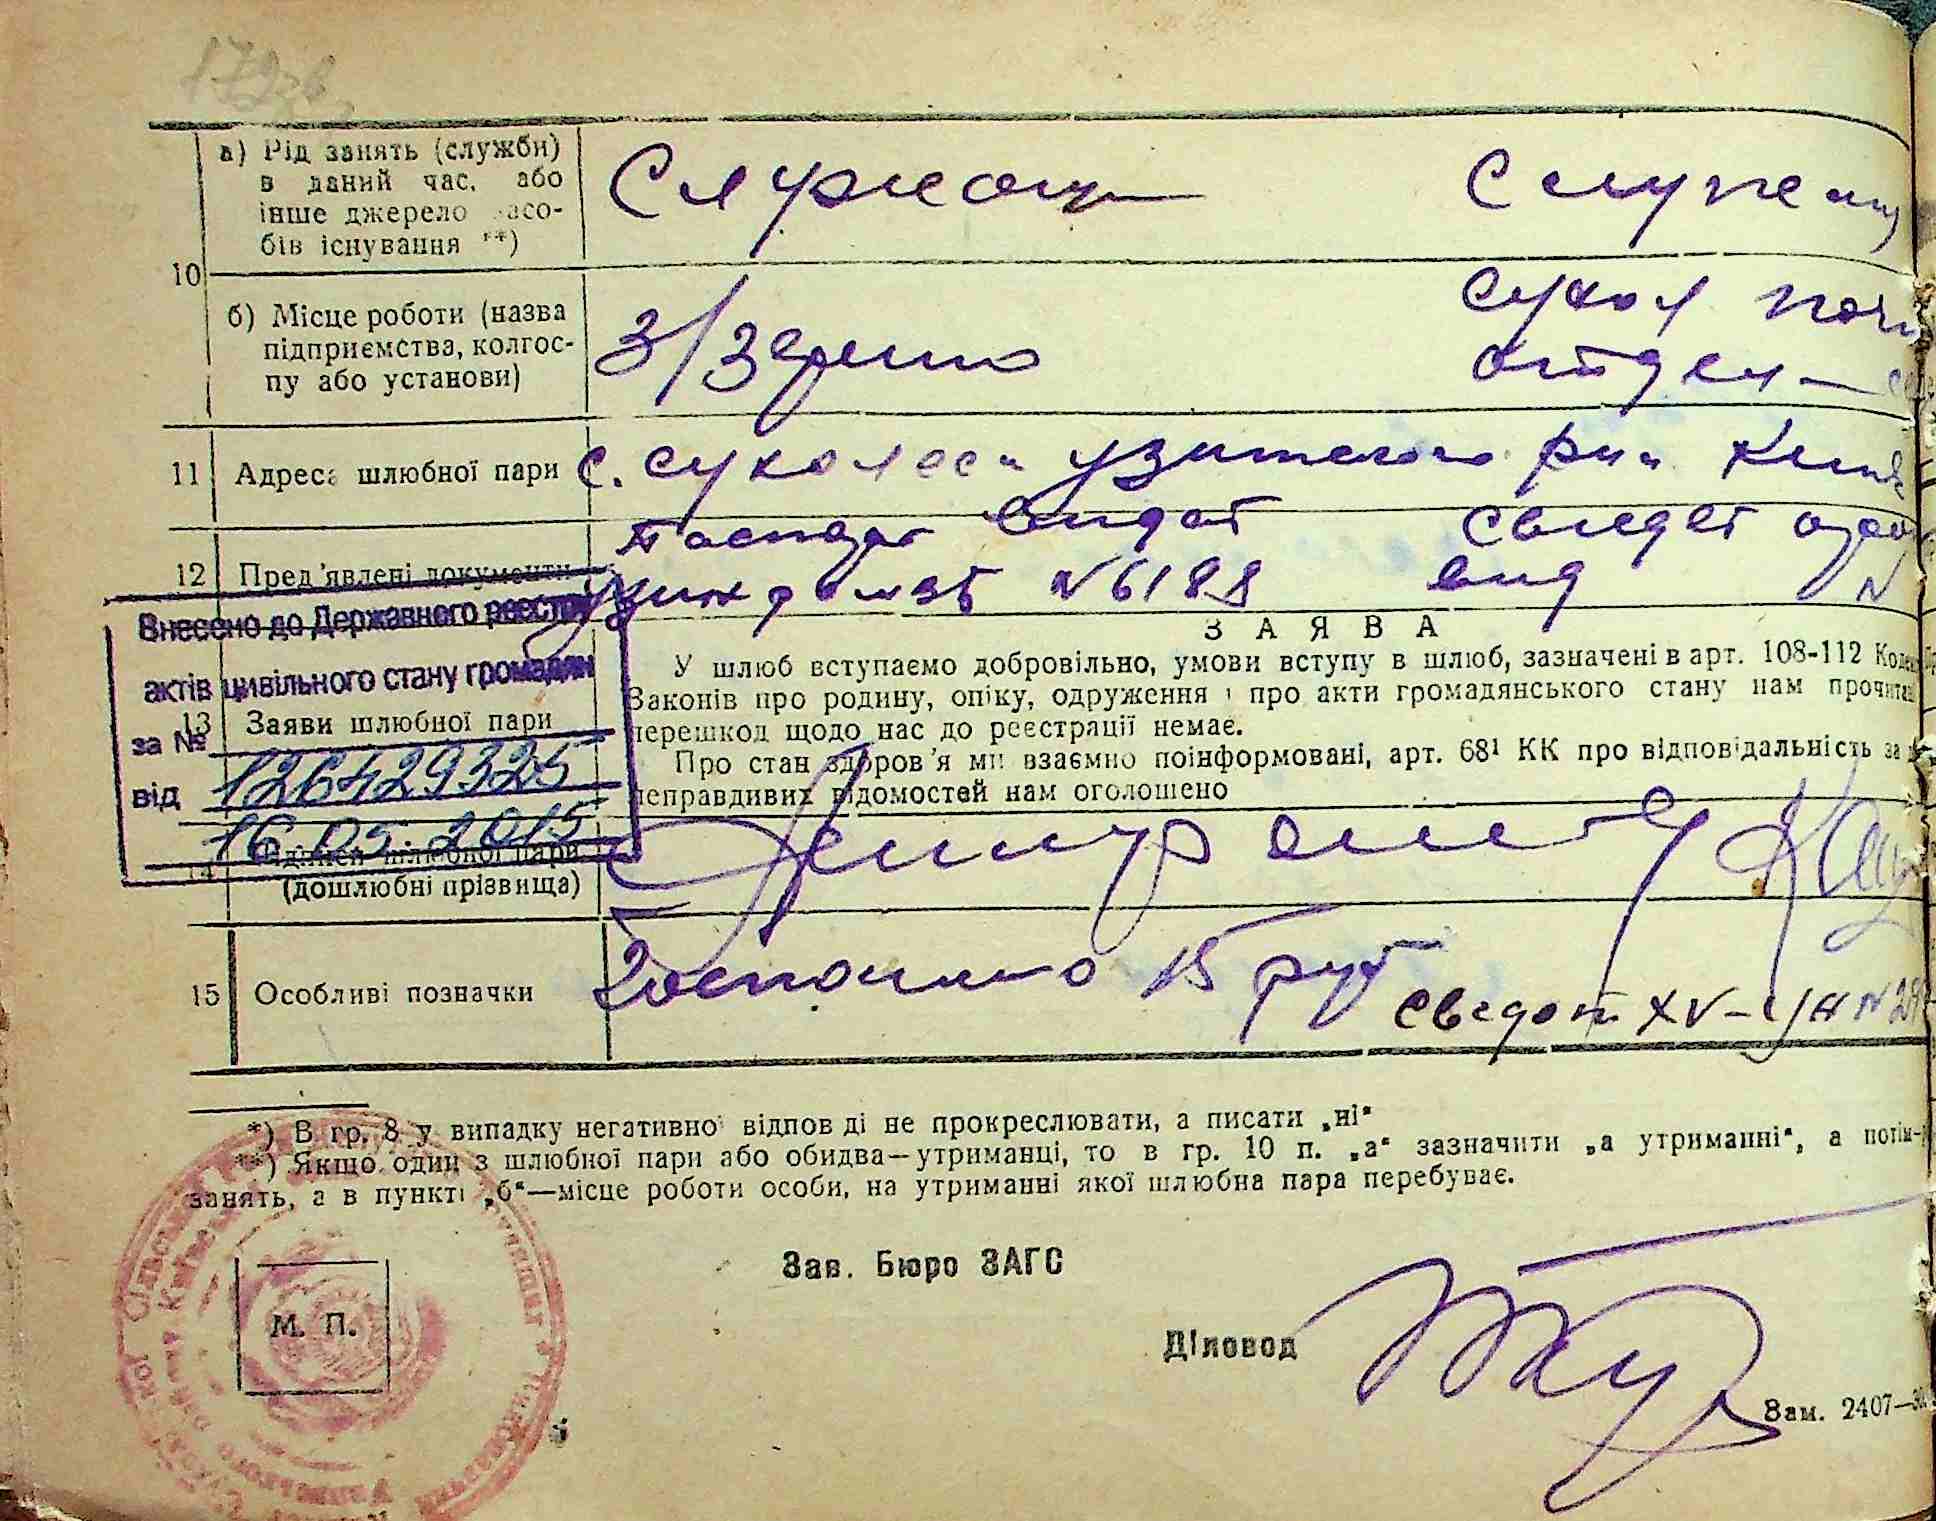 а) Рід занять (служби)
в даний час, або
інше джерело засо-
бів існування **)
Служащ
Служащ
10
б) Місце роботи (назва
підприємства, колгос-
пу або установи)
З/Зерно
Сухол
отдел
11 Адреса шлюбної пари
с. Сухолеси Узинского р-на Киев
12 Пред'явлені документи
Паспорт видат
№ 6188
свидет
вид №
Внесено до Державного реєстру
актів цивільного стану громадян
за №
126429325
від
16.05.2015
13 Заяви шлюбної пари
ЗАЯВА
У шлюб вступаємо добровільно, умови вступу в шлюб, зазначені в арт. 108-112
Законів про родину, опіку, одруження і про акти громадянського стану нам
перешкод щодо нас до реєстрації немає.
Про стан здоров'я ми взаємно поінформовані, арт. 68¹ КК про відповідальність за
неправдивих відомостей нам оголошено
14 Підписи шлюбної пари
(дошлюбні прізвища)
15 Особливі позначки
Госпошлино 15 руб
Свидот XV-
*) В гр. 8 у випадку негативної відповіді не прокреслювати, а писати „ні“
**) Якщо один з шлюбної пари або обидва—утриманці, то в гр. 10 п. „а“ зазначити „а утриманні“, а потім
занять, а в пункті „б“—місце роботи особи, на утриманні якої шлюбна пара перебуває.
М. П.
Зав. Бюро ЗАГС
Діловод
Зам. 2407—